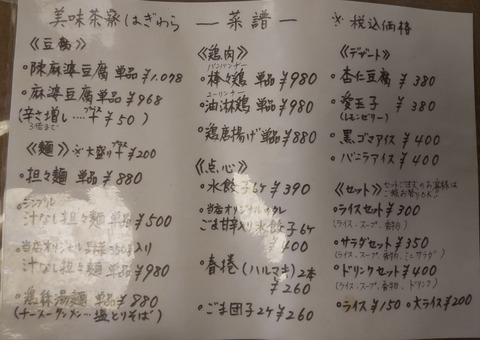 美味茶寮はぎわら ― 菜譜 ― ※税込価格
《豆腐》
・陳麻婆豆腐 単品 ¥1,078
・麻婆豆腐 単品 ¥968
(辛さ増し…プラス ¥50)
3倍まで
《麺》 ※大盛りプラス ¥200
・担々麺 単品 ¥880
・シンプル
汁なし担々麺 単品 ¥500
・当店オリジナル
汁なし担々麺 単品 ¥980
・鶏絲湯麺 単品 ¥880
(チースータンメン…塩とりそば)
《鶏肉》
バンバンヂー
・棒々鶏 単品 ¥980
ユーリンヂー
・油淋鶏 単品 ¥980
・鶏唐揚げ 単品 ¥880
《点心》
・水餃子6ケ ¥390
・当店オリジナルタレ
ごま甘辛入り水餃子6ケ
¥400
・春捲(ハルマキ)2本
¥260
・ごま団子2ケ ¥260
《デザート》
・杏仁豆腐 ¥380
・愛玉子 ¥380
(レモンゼリー)
・黒ゴマアイス ¥400
・バニラアイス ¥400
《セット》
・ライスセット ¥300
(ライス、スープ、香物)
・サラダセット ¥350
(ライス、スープ、香物、ミニサラダ)
・ドリンクセット ¥400
(ライス、スープ、香物、ドリンク)
・ライス ¥150 ・大ライス ¥200